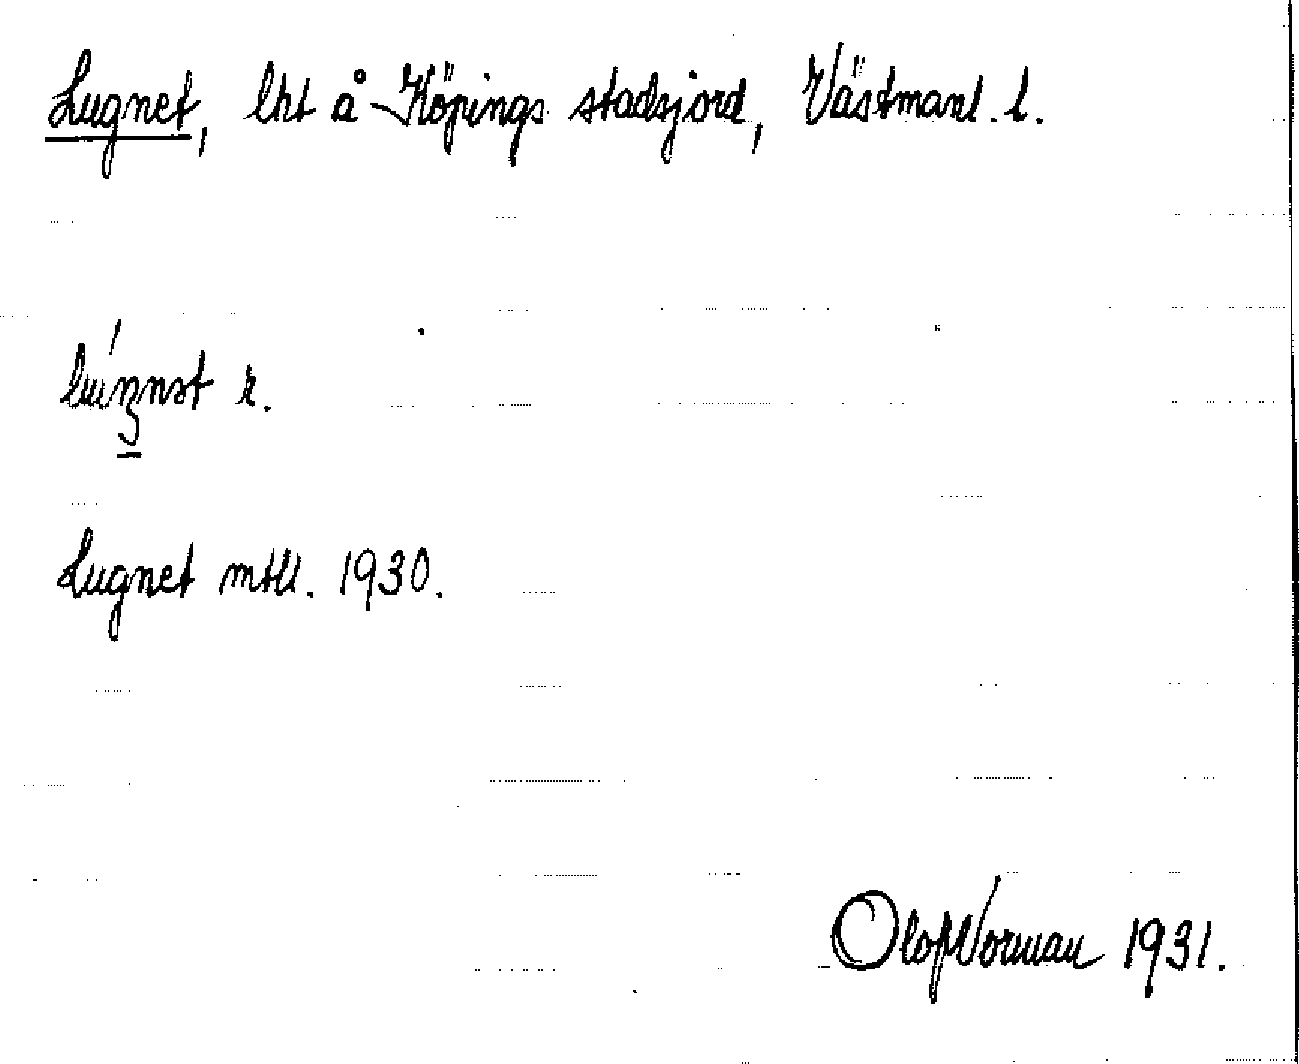 Lugnet, lht å Köpings stadsjord, Västmanl. l.
Lugnet mtll. 1930.
Olof Norman 1931.